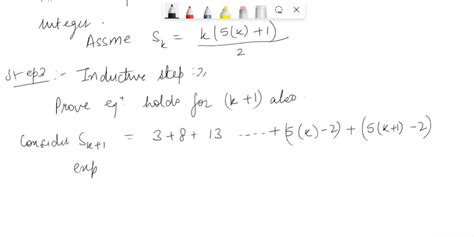 integer.
Assme S_k = k(5(k)+1)/2
Step2 :- Inductive step :>,
Prove eqⁿ holds for (k+1) also
Consider S_{k+1} = 3+8+13 ----+(5(k)-2)+(5(k+1)-2)
exp